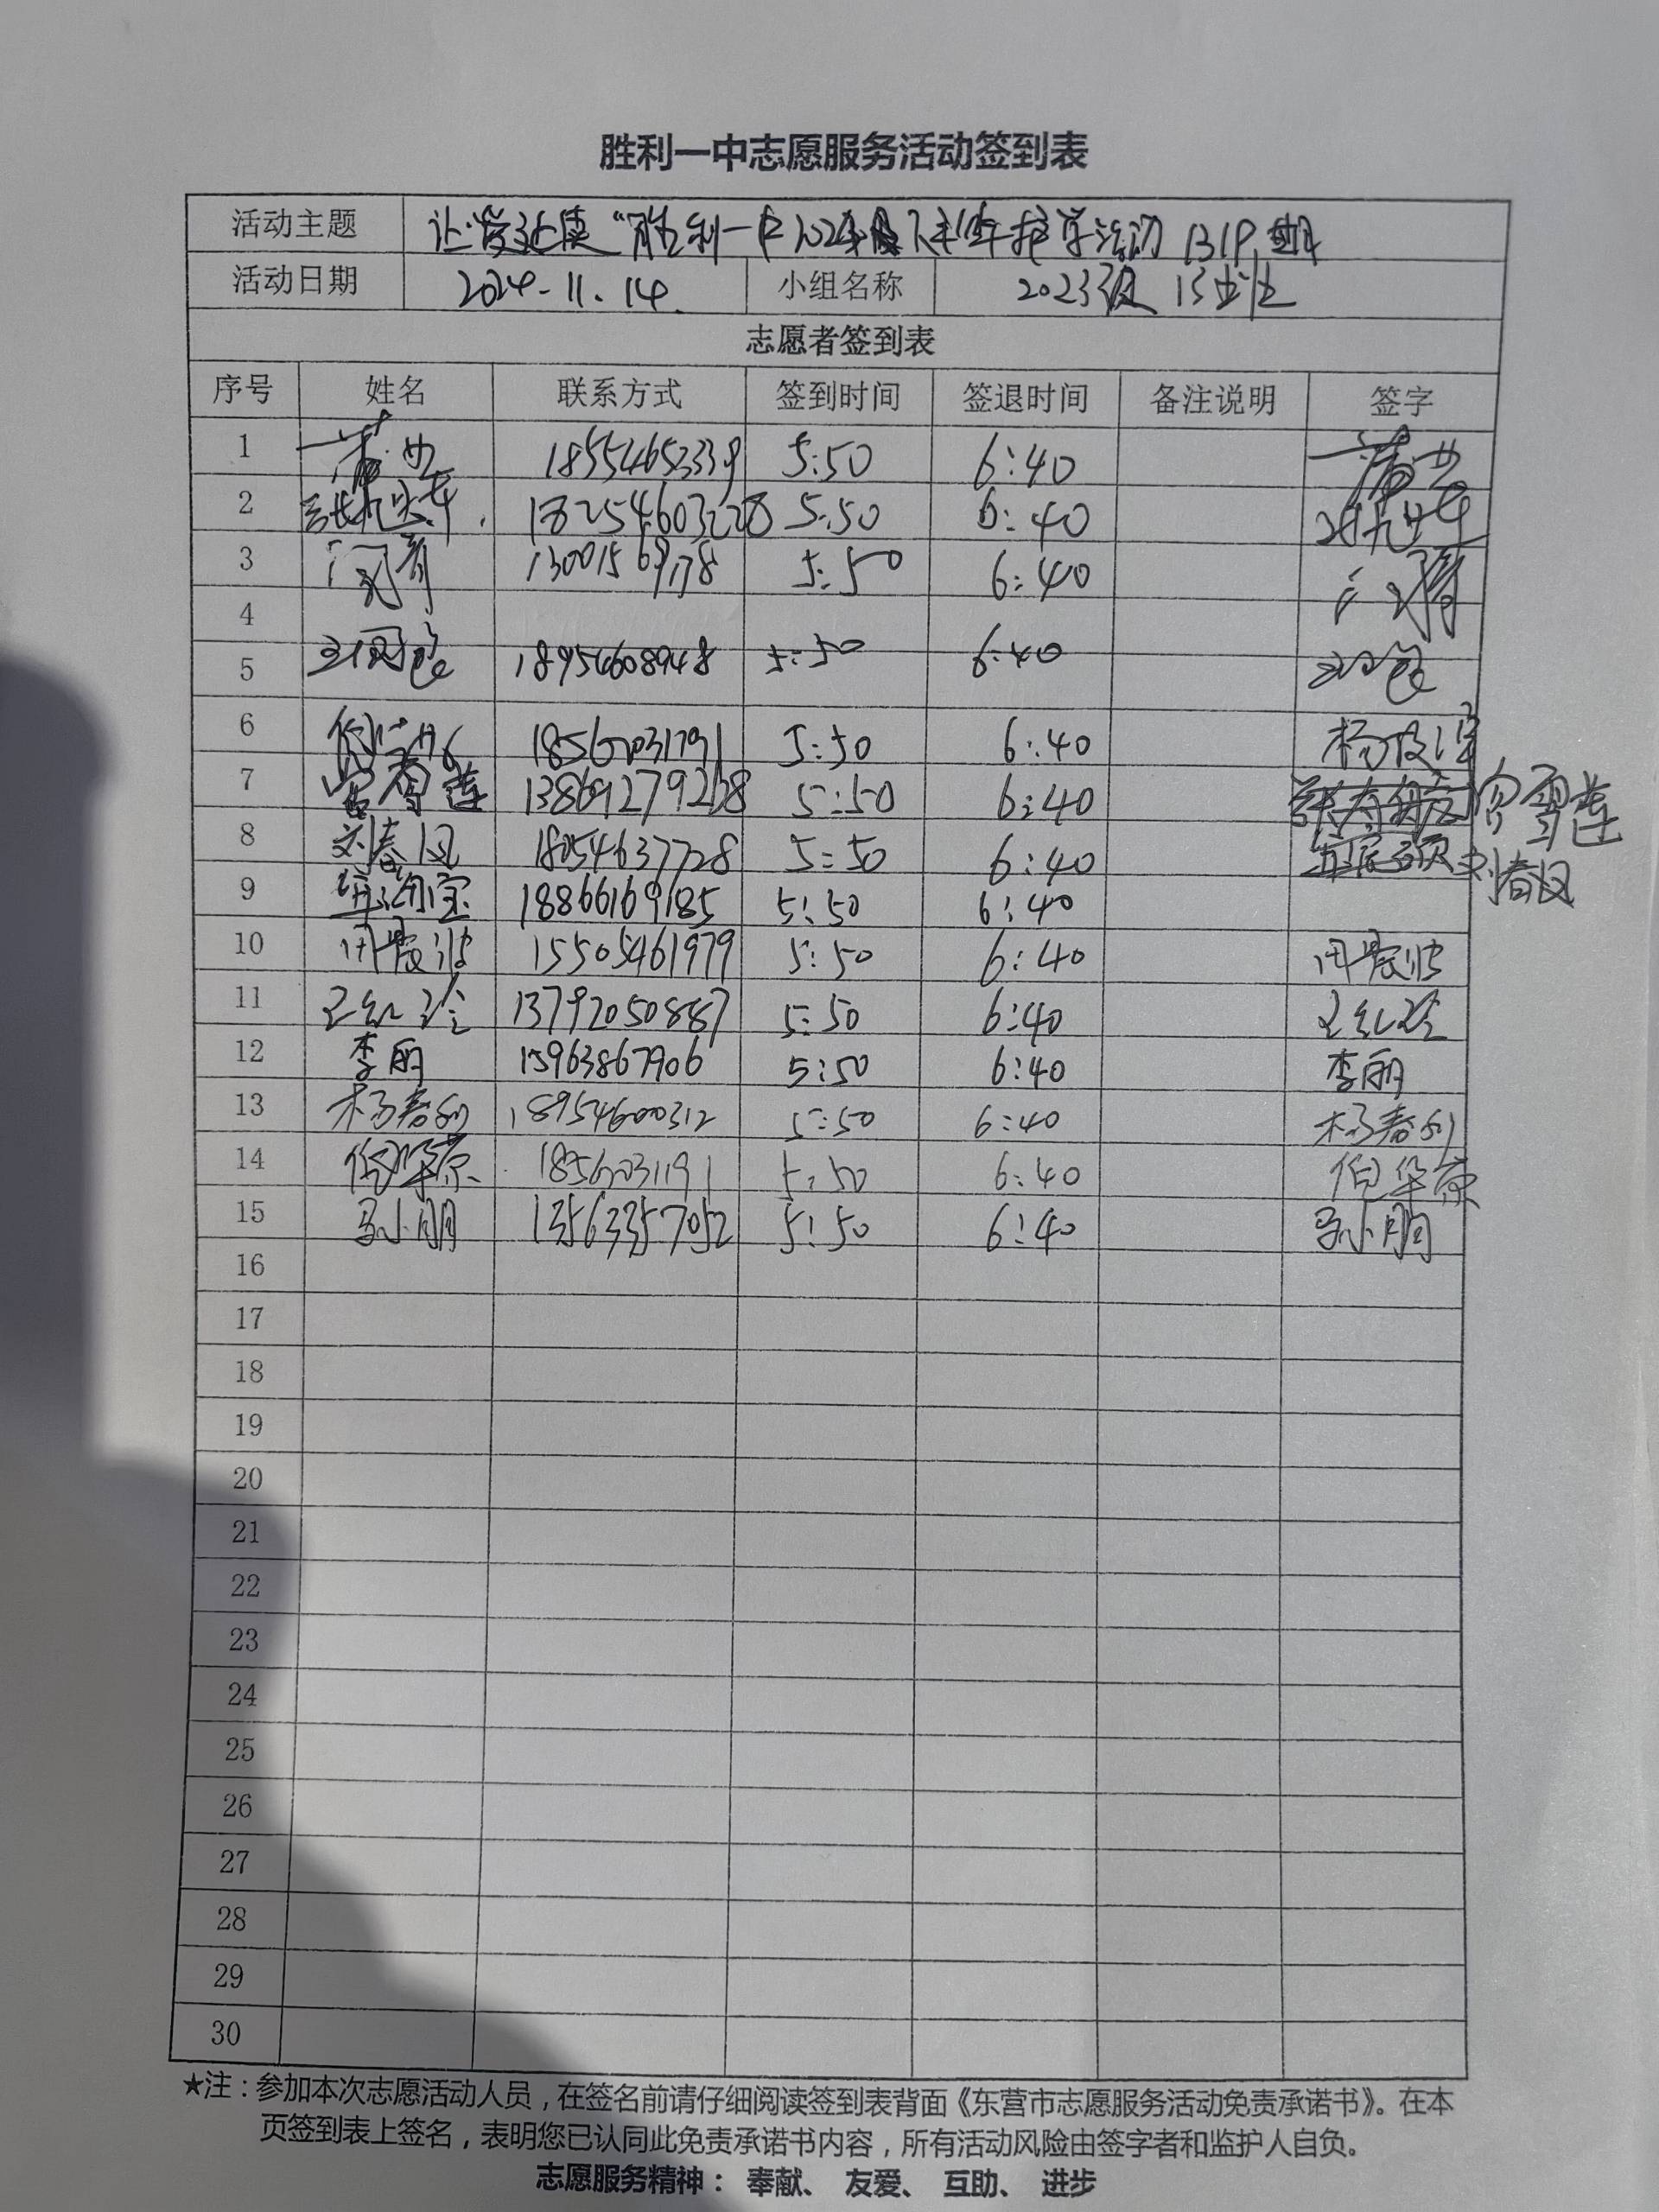 胜利一中志愿服务活动签到表
活动主题 让爱延续"胜利一中2024年 护学活动 1319期
活动日期 2024-11.14. 小组名称 2023级 13班
志愿者签到表
序号 姓名 联系方式 签到时间 签退时间 备注说明 签字
1 18554653339 5:50 6:40
2 18254603228 5:50 6:40
3 13001569178 5:50 6:40
4
5 18954608948 5:50 6:40
6 18562031791 5:50 6:40
7 宫雪莲 5:50 6:40 宫雪莲
8 刘春凤 18054637728 5:50 6:40 刘春凤
9 18866169185 5:50 6:40
10 15505461979 5:50 6:40
11 王红玲 13792050887 5:50 6:40 王红玲
12 李丽 15963867906 5:50 6:40 李丽
13 杨春利 18954600312 5:50 6:40 杨春利
14 5:50 6:40
15 马小朋 13563357052 5:50 6:40 马小朋
16
17
18
19
20
21
22
23
24
25
26
27
28
29
30
★注：参加本次志愿活动人员，在签名前请仔细阅读签到表背面《东营市志愿服务活动免责承诺书》。在本
页签到表上签名，表明您已认同此免责承诺书内容，所有活动风险由签字者和监护人自负。
志愿服务精神： 奉献、 友爱、 互助、 进步